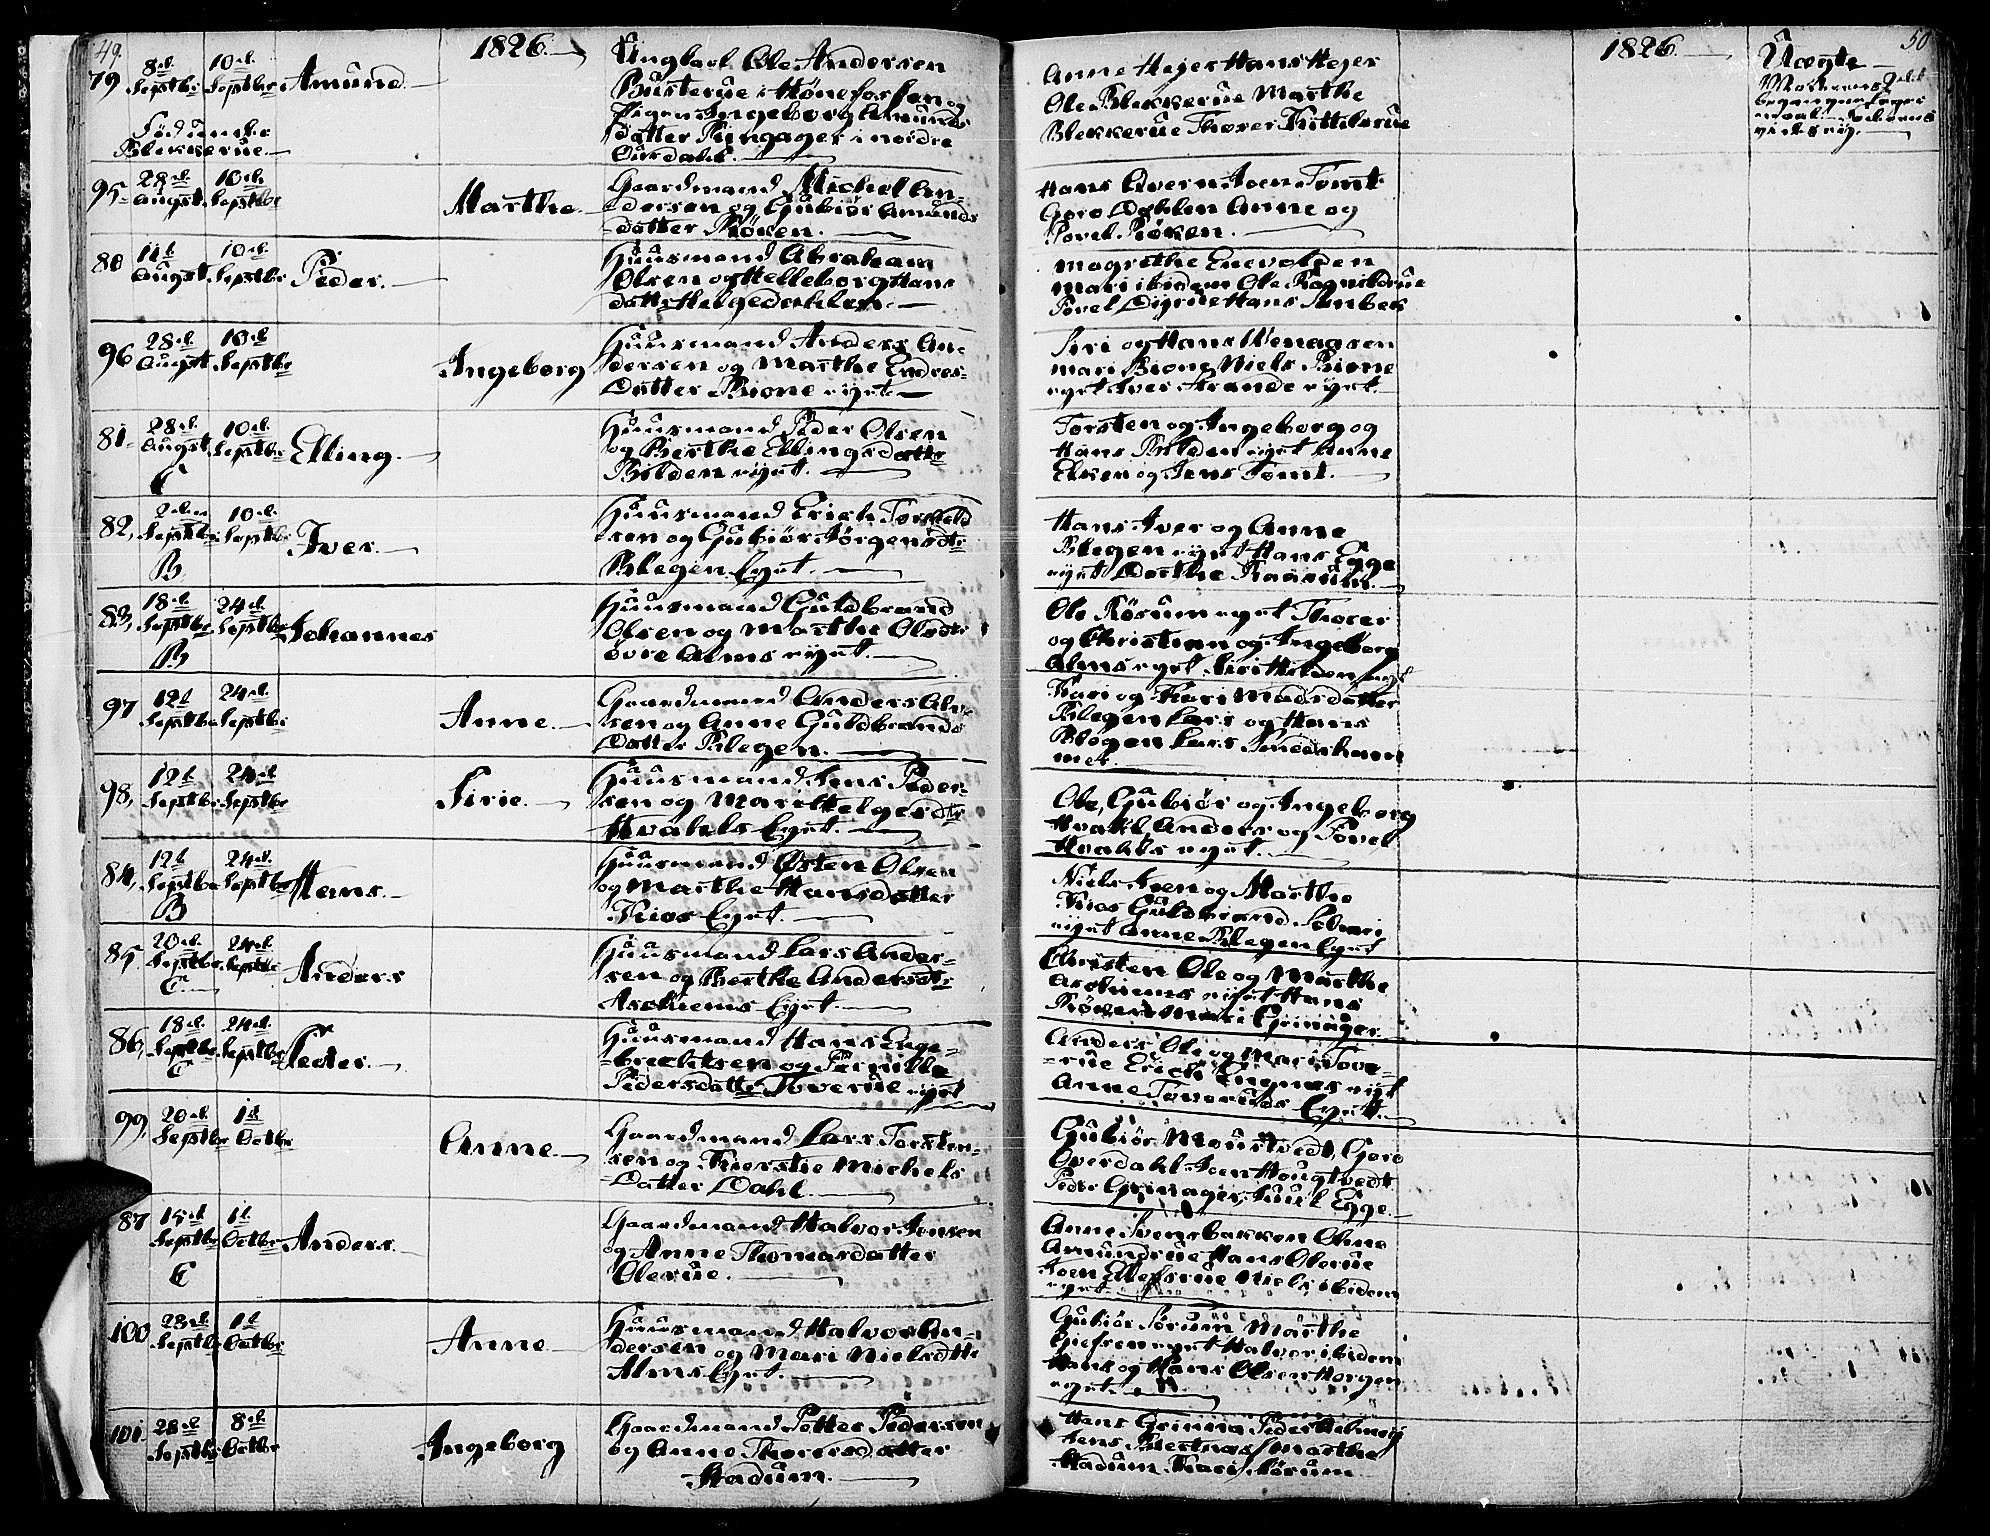 49.
1826.
79
8de Septbr
10de Septbr
Amund.
Ungkarl Ole Andersen
Busterue i Hönefossen og
Pigen Ingeborg Amunds
datter Ringager i nordre
Ourdahl.
Föd under
Blekkerue.
95
28de Augst.
10de Septbr
Marthe.
Gaardmand Michel An-
dersen og Gubiör Amunds
datter Röken.
80
11te Augst.
10de Septbr
Peder.
Huusmand Abraham
Olsen og Helleborg Hans
datter Helgedahlen.
96
28de Augst
10de Septbr
Ingeborg
Huusmand Anders An-
dersen og Marthe Endres-
Datter Bione eyet.
81.
28de Augst.
10de Septbr
Elling.
Huusmand Peder Olsen
og Berthe Ellingsdatter
Bilden eyet.
82,
2den Septbr.
10de Septbr
Iver.
B
Huusmand Erich Torkild
sen og Gubiör Jörgensdtr
Blegen Eyet.
83,
18de Septbr
24de Septbr
Johannes
B
Huusmand Guldbrand
Olsen og Marthe Olsdtr
övre Alms eyet.
97
12te Septbr
24de Septbr
Anne.
Gaardmand Anders Ol-
sen og Anne Guldbrands
Datter Blegen.
98,
12te Septbr
24de Septbr
Sirie.
Huusmand Jens Peder-
sen og Mari Helgerdtr
Hvahls Eyet.
84,
12te Septbr
24de Septbr
Hans.
B
Huusmand Østen Olsen
og Marthe Hansdatter
Kios Eyet.
85.
20de Septbr.
24de Septbr
Anders
Huusmand Lars Ander-
sen og Berthe Andersdtr
Aschiems Eyet.
86,
18de Septbr
24de Septbr
Peder.
Huusmand Hans Enge-
brechtsen og Pernille
Pedersdatter Toverue eyet
99,
20de Septbr
1te Octbr
Anne.
Gaardmand Lars Torsten-
sen og Kierstie Michels
Datter Dahl.
87
15de Septbr
1te Octbr
Anders.
Gaardmand Halvor Jonsen
og Anne Thomasdatter
Olerue.
100
28de Septbr
1te Octbr
Anne.
Huusmand Halvor An-
dersen og Mari Nielsdttr
Alms Eyet.
101.
28de Septbr
8de Octbr
Ingeborg
Gaardmand Petter Pedersen
og Anne Thoresdatter
Hadum.
1826.
50
Anne Hejer Hans Hejer
Ole Blekkerue Marthe
Blekkerue Thorer
Uægte
Moderens 2det
begangne Leger
maal
Hans Qvern Joen Tomt
Goro Dahlen Anne og
Povel Röken.
Magrethe Enevolden
Mari ibidem Ole Rognildrue
Povel Digrue Hans
Siri og Hans
Mari Bione Niels Bione
eyet Iver Strande eyet.
Torsten og Ingeborg og
Hans Bilden eyet Anne
Eken og Jens Tomt.
Hans Iver og Anne
Blegen eyet Hans Egge
eyet Dorthe
Ole Rösum eyet Thorer
og Christian og Ingeborg
Alms eyet Siri
Kari og Kari Madsdatter
Blegen Lars og Hans
Blegen Lars Smedsham
mer.
Ole, Gubiör og Ingeborg
Hvahl Anders og Povel
Hvahls eyet.
Niels Joen og Marthe
Kios Guldbrand
eyet Anne Blegen Eyet
Christen Ole og Marthe
Aschiems eyet Hans
Röken Mari Grinager.
Anders Ole og Mari Tove-
rue Erich Engnæs eyet
Anne Toveruds Eyet.
Gubiör Moustvedt, Goro
Overdahl Joen Hougtvedt
Peder Grinager, Juul Egge.
Anne Svensbakken Oline
Amundrue Hans Olerue
Joen Ellefsrue Niels ibidem
eyet.
Gubiör Sörum Marthe
Gjefsen eyet Halvor ibidem
Hans og Hans Olsen Horgen
eyet.
Hans Grinna Peder
Jens Marthe
Hadum Kari Sörum